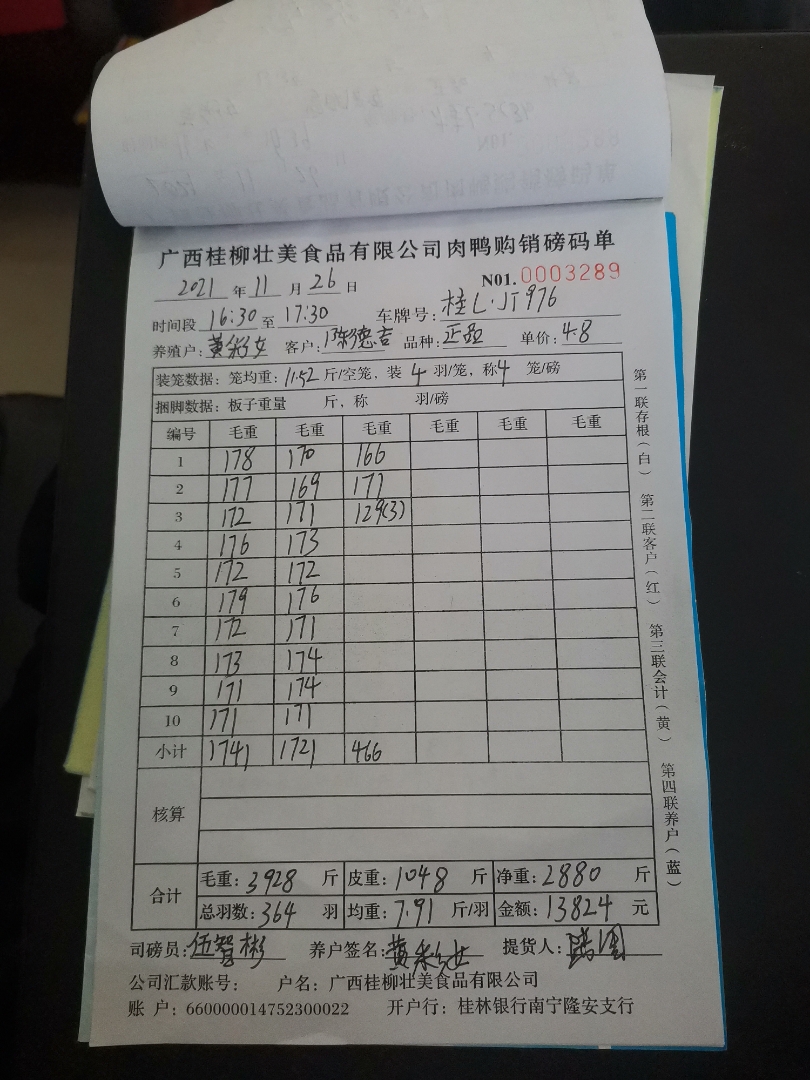 广西桂柳壮美食品有限公司肉鸭购销磅码单
2021 年 11 月 26 日 N01. 0003289
时间段 16:30 至 17:30 车牌号: 桂L·JT976
养殖户: 黄彩女 客户: 陈德吉 品种: 正品 单价: 4.8
装笼数据: 笼均重: 11.52 斤/空笼, 装 4 羽/笼, 称 4 笼/磅
捆脚数据: 板子重量 斤, 称 羽/磅
编号 毛重 毛重 毛重 毛重 毛重 毛重
1 178 170 166
2 177 169 171
3 172 171 129(3)
4 176 173
5 172 172
6 179 176
7 172 171
8 173 174
9 171 174
10 171 171
小计 1741 1721 466
核算
合计 毛重: 3928 斤 皮重: 1048 斤 净重: 2880 斤
总羽数: 364 羽 均重: 7.91 斤/羽 金额: 13824 元
司磅员: 伍智彬 养户签名: 黄彩女 提货人:
公司汇款账号: 户名: 广西桂柳壮美食品有限公司
账 户: 660000014752300022 开户行: 桂林银行南宁隆安支行
第一联存根(白) 第二联客户(红) 第三联会计(黄) 第四联养户(蓝)